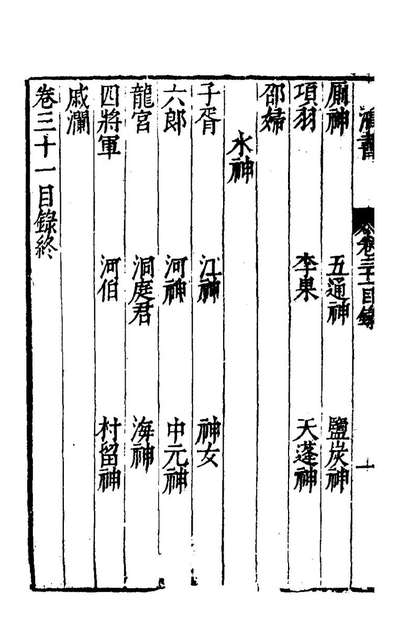 廁神　五通神　鹽炭神
項羽　李果　天蓬神
邵婦
水神
子胥　江神　神女
六郎　河神　中元神
龍宮　洞庭君　海神
四將軍　河伯　村留神
戚瀾
卷三十一目錄終